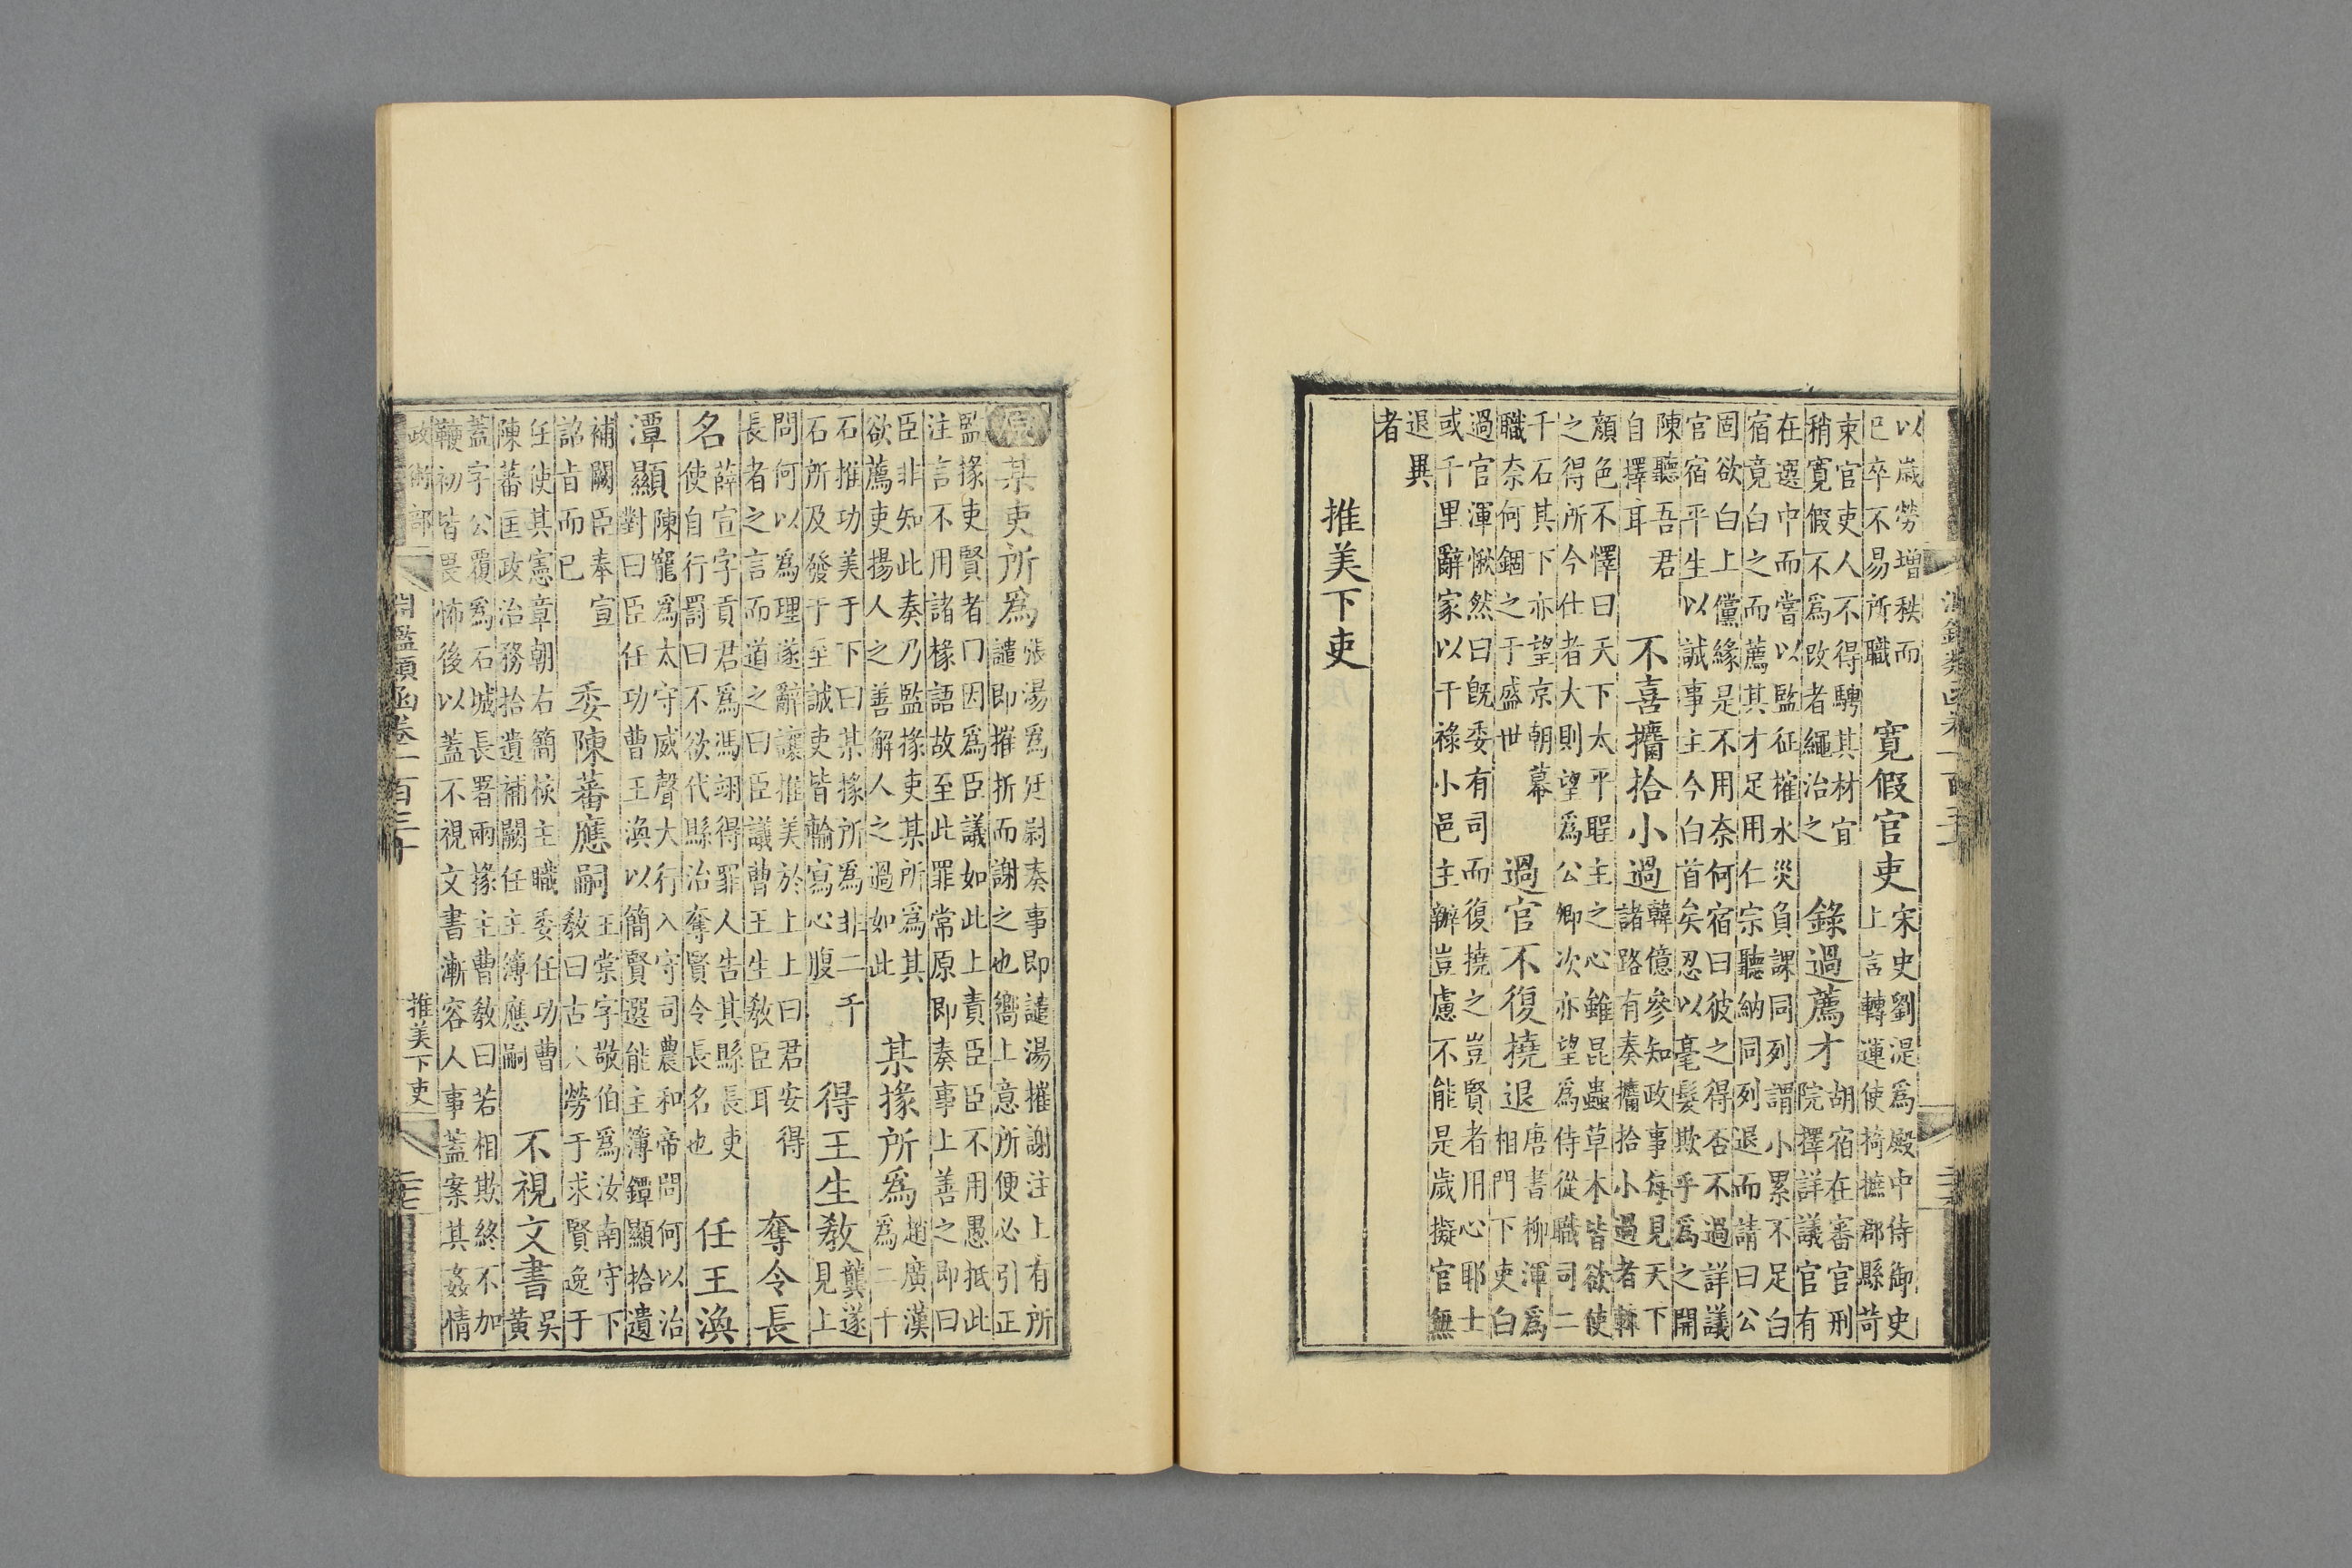 以歲勞增秩而
已卒不易所職
寬假官吏
宋史劉湜爲殿中侍御史
上言轉運使掎摭郡縣苛
束官吏人不得騁其材宜
稍寬假不爲改者繩治之
錄過薦才
胡宿在審官刑
院擇詳議官有
在選中而嘗以監征榷水災負課同列謂小累不足白
宿竟白之而薦其才足用仁宗聽納同列退而請曰公
固欲白上儻緣是不用奈何宿曰彼之得否不過詳議
官宿平生以誠事主今白首矣忍以毫髮欺乎爲之開
陳聽吾君
自擇耳
不喜攟拾小過
韓億參知政事每見天下
諸路有奏攟拾小過者輒
顏色不懌曰天下太平聖主之心雖昆蟲草木皆欲使
之得所今仕者大則望爲公卿次亦望爲侍從職司二
千石其下亦望京朝幕
職奈何錮之于盛世
過官不復撓退
唐書柳渾爲
相門下吏白
過官渾愀然曰旣委有司而復撓之豈賢者用心耶士
或千里辭家以干祿小邑主辦豈慮不能是歲擬官無
退異
者
推美下吏
原
某吏所爲
張湯爲廷尉奏事即譴湯摧謝注上有所
譴即摧折而謝之也嚮上意所便必引正
監掾吏賢者曰因爲臣議如此上責臣臣不用愚抵此
注言不用諸掾語故至此罪常原即奏事上善之即曰
臣非知此奏乃監掾吏某所爲其
欲薦吏揚人之善解人之過如此
某掾所爲
趙廣漢
爲二千
石推功美于下曰某掾所爲非二千
石所及發于至誠吏皆輸寫心腹
得王生教
龔遂
見上
問何以爲理遂辭讓推美於上上曰君安得
長者之言而道之曰臣議曹王生教臣耳
奪令長
名
薛宣字貢君爲馮翊得罪人告其縣長吏
使自行罰曰不欲代縣治奪賢令長名也
任王渙
潭顯
陳寵爲太守威聲大行入守司農和帝問何以治
對曰臣任功曹王渙以簡賢選能主簿鐔顯拾遺
補闕臣奉宣
詔旨而已
委陳蕃應嗣
王棠字敬伯爲汝南守下
教曰古人勞于求賢逸于
任使其憲章朝右簡核主職委任功曹
陳蕃匡政治務拾遺補闕任主簿應嗣
不視文書
吳
黃
蓋字公覆爲石城長署兩掾主曹教曰若相欺終不加
鞭初皆畏怖後以蓋不視文書漸容人事蓋案其姦情
政術部
淵鑑類函卷一百三十
推美下吏